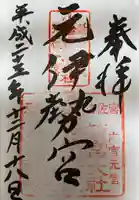 奉拝
元伊勢宮
平成二十三年十二月十八日